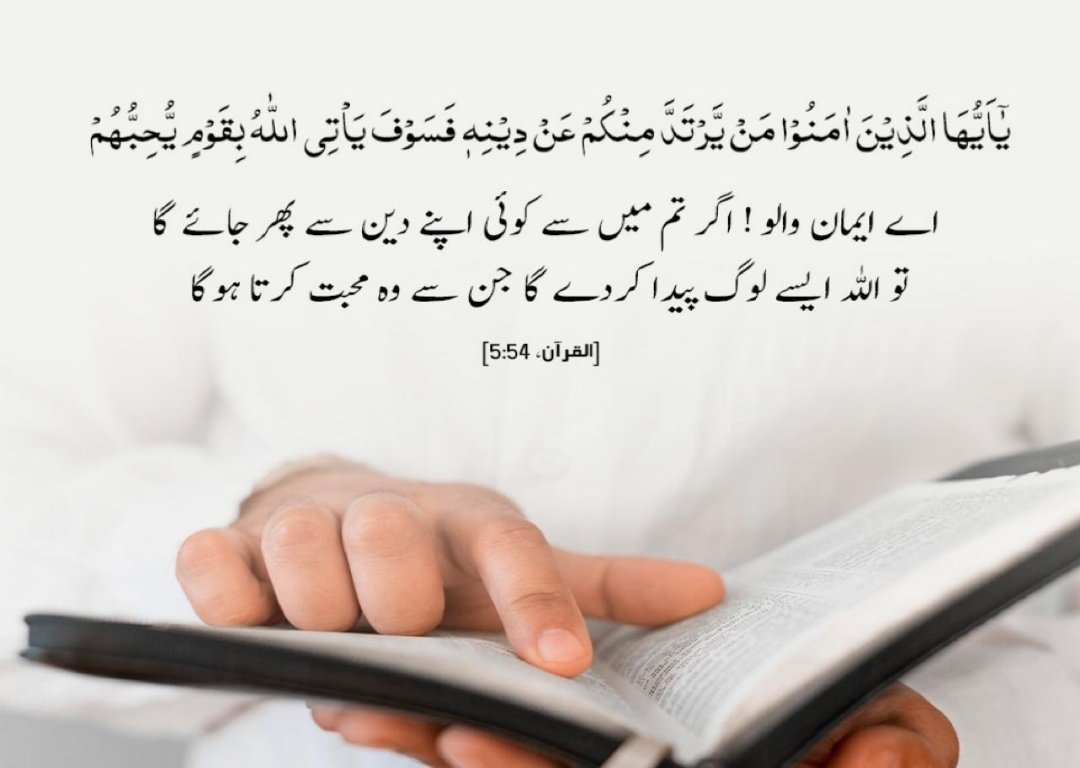 يٰۤاَيُّهَا الَّذِيْنَ اٰمَنُوْا مَنْ يَّرْتَدَّ مِنْكُمْ عَنْ دِيْنِهٖ فَسَوْفَ يَاْتِى اللّٰهُ بِقَوْمٍ يُّحِبُّهُمْ
اے ایمان والو ! اگر تم میں سے کوئی اپنے دین سے پھر جائے گا
تو اللہ ایسے لوگ پیدا کردے گا جن سے وہ محبت کرتا ہوگا
[القرآن، 5:54]